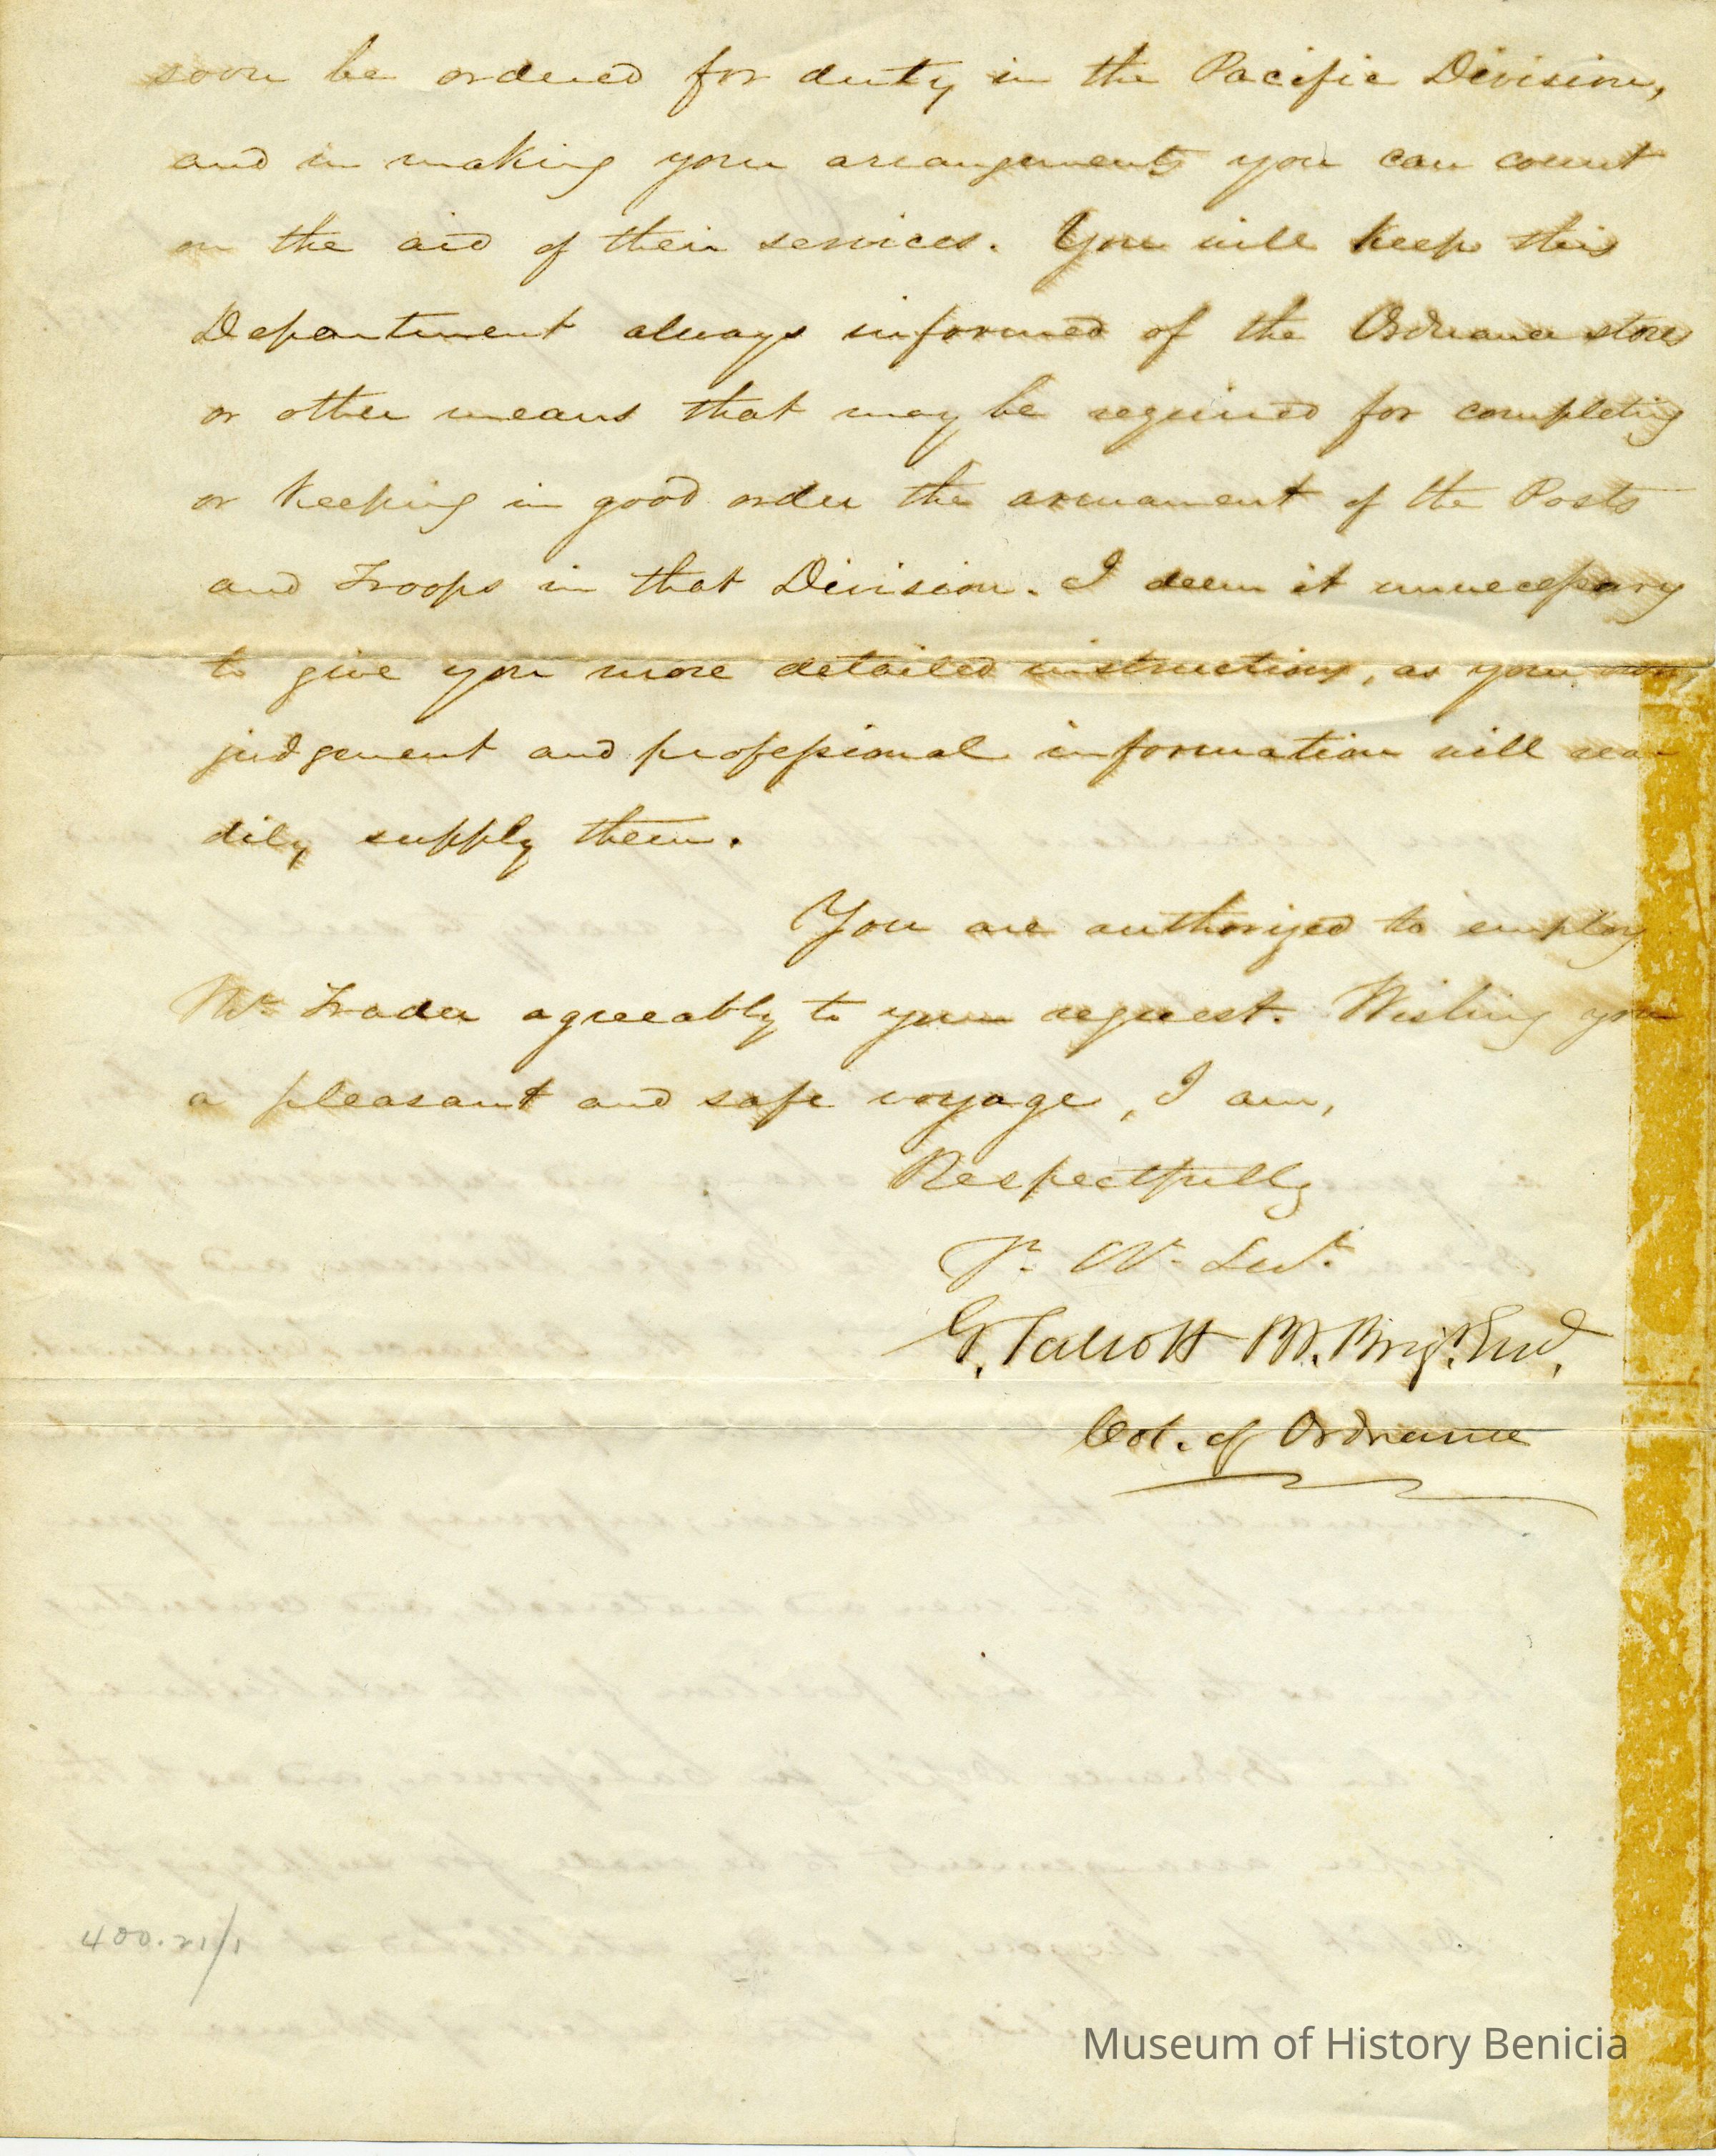 soon be ordered for duty in the Pacific Division,
and in making your arrangements you can count
on the aid of their services. You will keep this
Department always informed of the Ordnance stores
or other means that may be required for completing
or keeping in good order the armament of the Posts
and Troops in that Division. I deem it unnecessary
to give you more detailed instructions, as your own
judgement and professional information will rea-
dily supply them.
You are authorized to employ
Mr Trader agreeably to your request. Wishing you
a pleasant and safe voyage, I am,
Respectfully
Yr. Ot. Sert.
G. Talcott Bt. Brig. Genl.
Col. of Ordnance
400.21/1
Museum of History Benicia